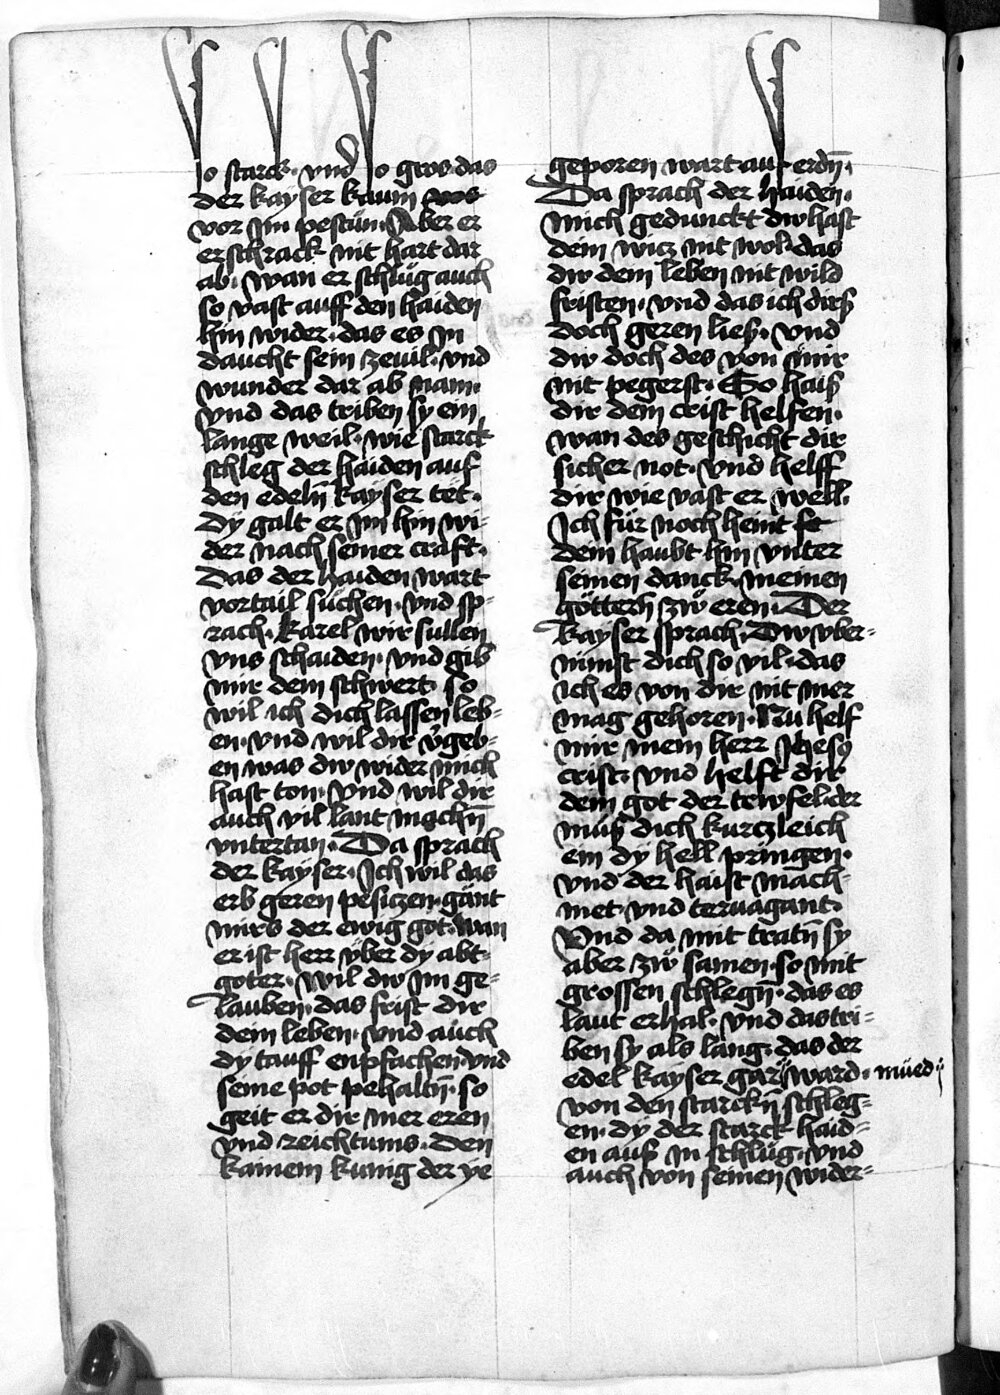 so starck · vnd so gros · das
der kayser kaum
vor jm pestŭn · Aber er
erschrack nit hart dar
ab · wan er schlŭg auch
so vast auff den haiden
hin wider · das es jn
daucht sein zeuil · vnd
wunder dar ab nam ·
vnd das triben sy ein
lange weil · wie starck
schleg der haiden auf
den edelñ kayser tet ·
dy galt er jm hin wi-
der nach seiner craft ·
das der haiden wart
vortail sŭchen · vnd sp-
rach · karel wir sullen
vns schaiden · vnd gib
mir dein schwert · so
wil ich dich lassen leb-
en · vnd wil dir v̈geb-
en was dw wider mich
hast ton · vnd wil dir
auch vil lant machñ
vntertan · Da sprach
der kayser · Ich wil das
erb geren pesiczen · gänt
mirs der ewig got · wan
er ist herr v̈ber dy abt-
goter · wil dw jm ge-
lauben · das frist dir
dein leben · vnd aŭch
dy tauff enpfachen · vnd
seine pot pehaltñ · so
geit er dir mer eren
vnd reichtums · den
kainem kunig der ye
geporen wart auf erdñ ·
Da sprach der haiden ·
mich gedunckt dw hast
dein wicz nit wol · das
dw dein leben nit wild
fristen · vnd das ich dirs
doch geren ließ · vnd
dw doch des von mir
nit pegerst · So haiß
dir dein crist helfen ·
wan des geschicht dir
sicher not · vnd helff
dir wie vast er well ·
Ich fŭr noch heint
dein haubt hin vnter
seinen danck · meinen
göttern zẅ eren · Der
kayser sprach · Dw vber-
nimst dich so vil · das
ich es von dir nit mer
mag gehoren · Nu helf
mir mein herr Jhesŭ
crist · vnd helft dir
dein got der tewfel · der
mŭß dich kurczleich
ein dy hell pringen ·
vnd der haist mach-
met · vnd teruagant ·
Vnd da mit tratñ sy
aber zẅ samen · so mit
grossen schlegñ · das es
laut erhal · vnd das tri-
ben sy als lang · das der
edel kayser gar ward · müed
von den starckñ schleg-
en · dy der starck haid-
en auß jn schlŭg · vnd
auch von seinen wider-